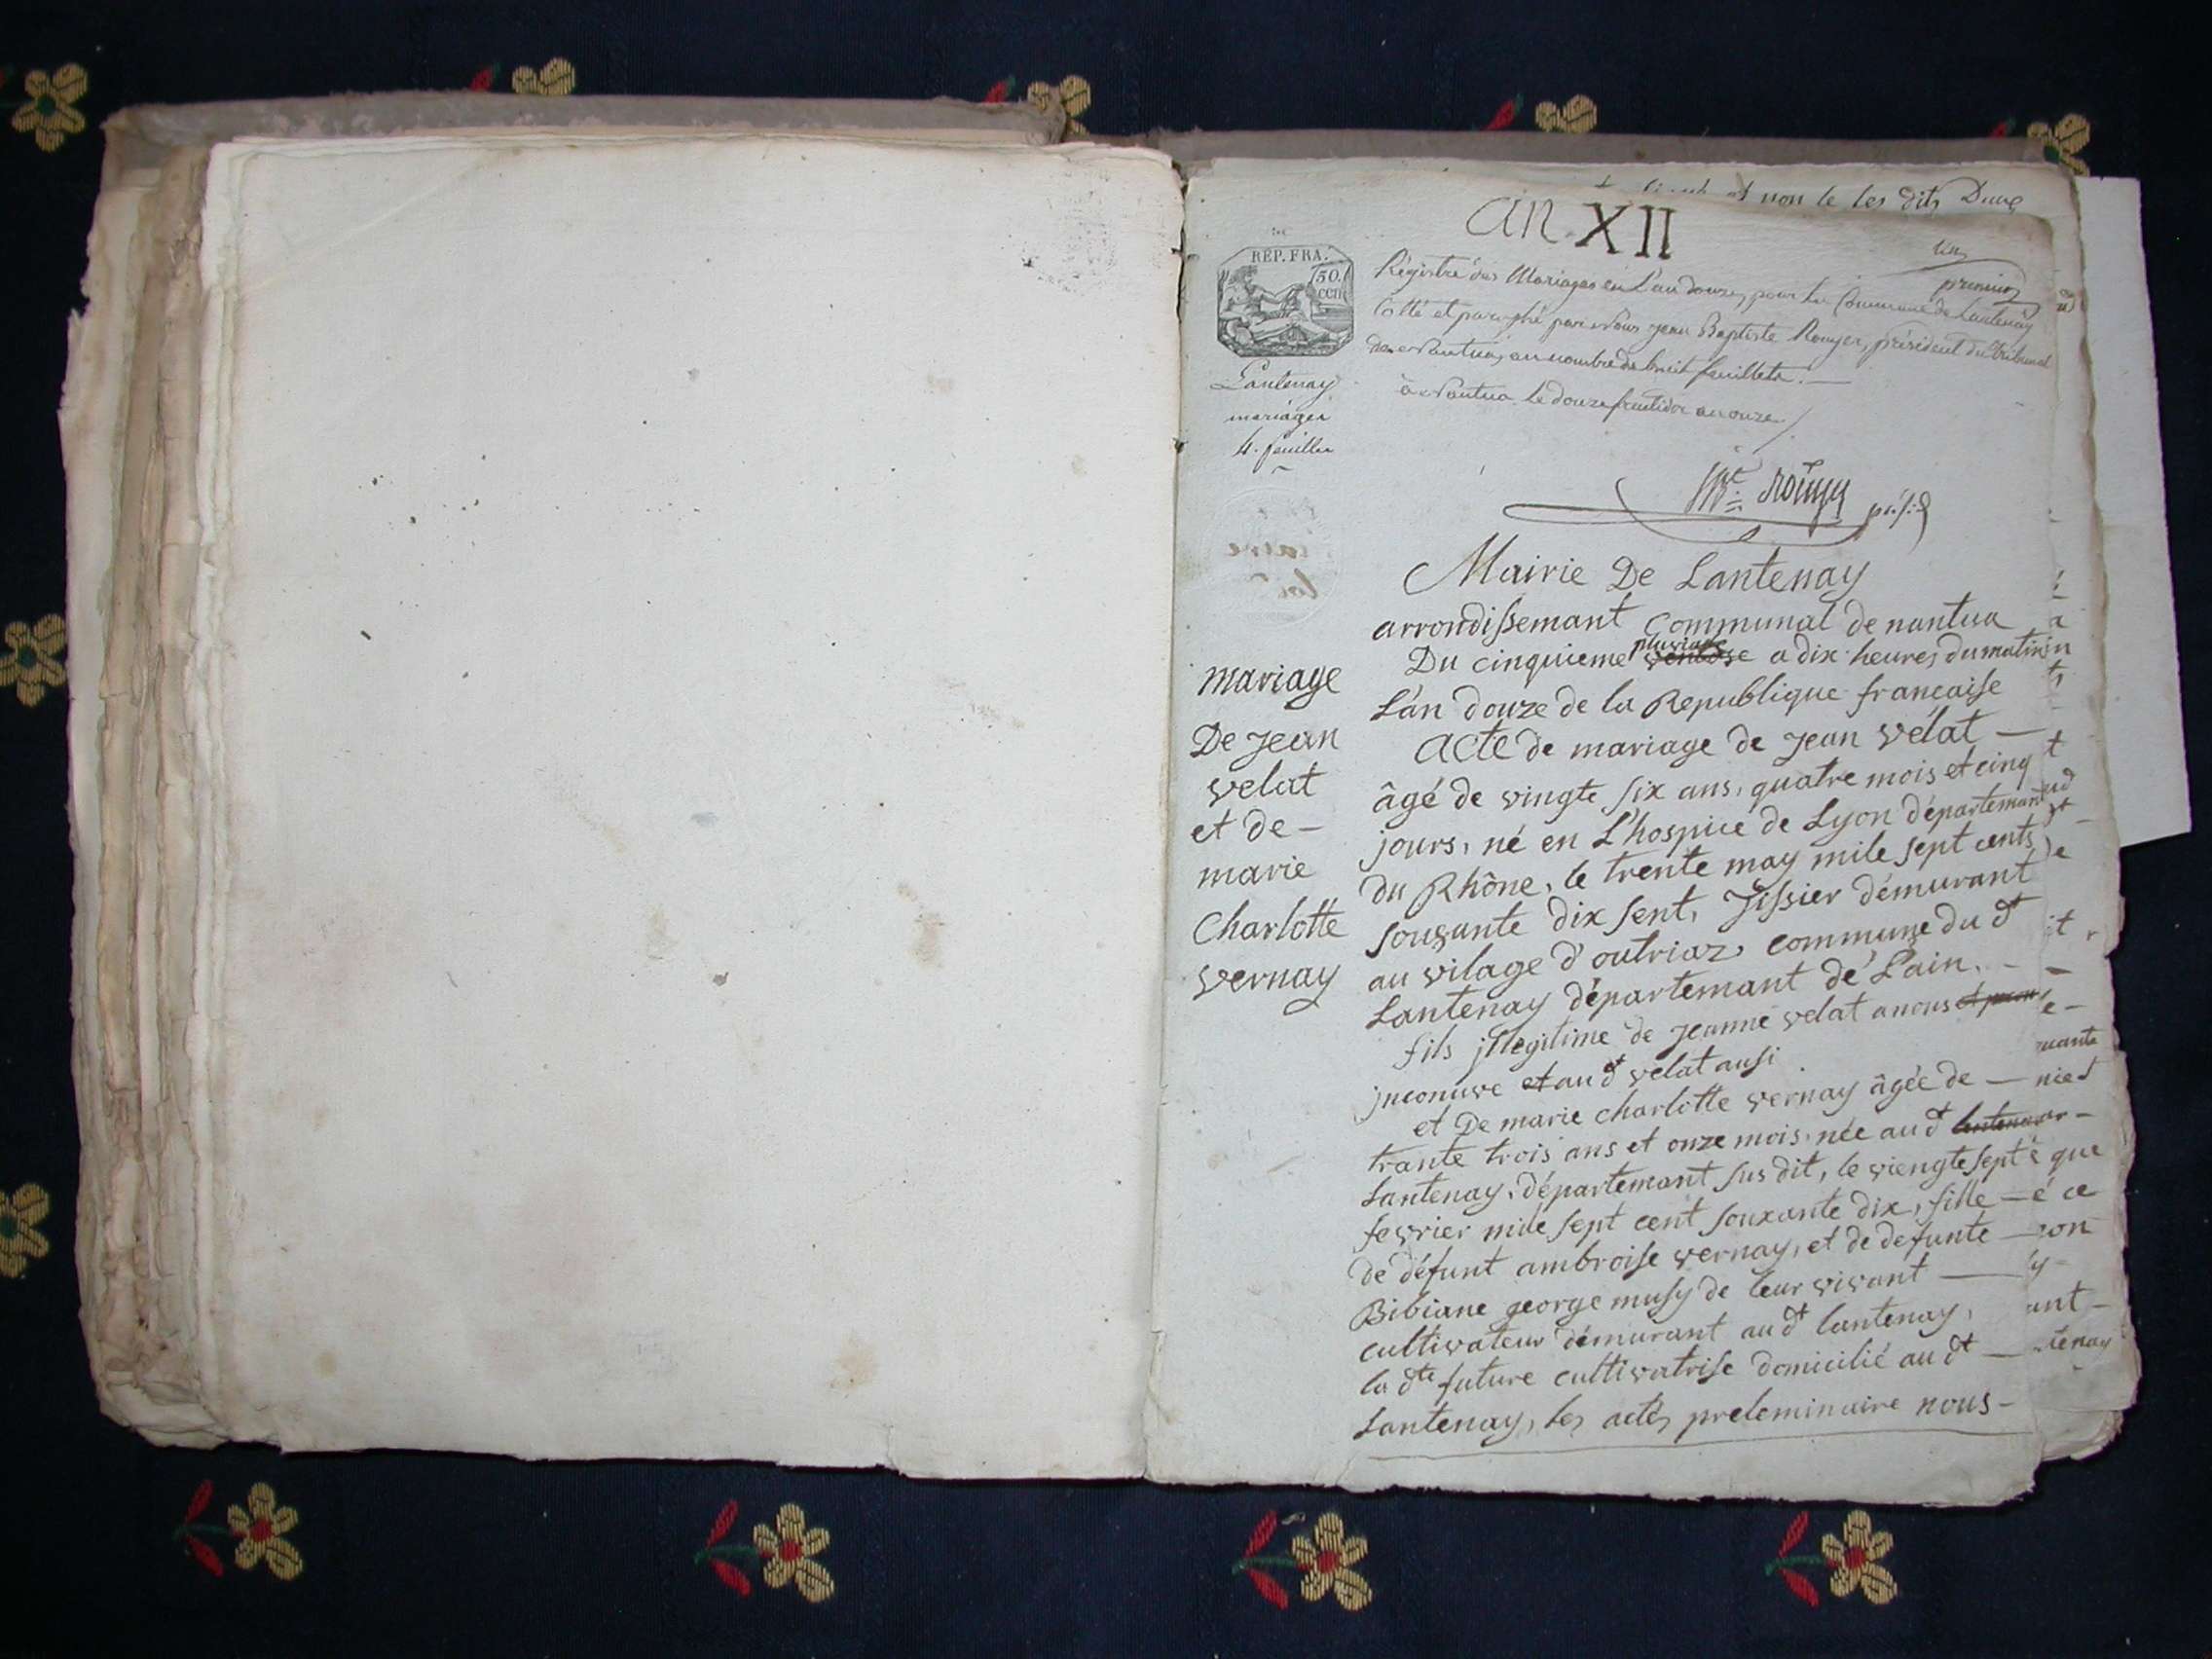 non le les dits
an XII
un
premier
REP. FRA.
50.
cen
Régistre des Mariages en L'an douze, pour la Commune de Lantenay
Cotté et paraphé par Nous Jean Baptiste Rouyer, président du tribunal
de Nantua, au nombre de huit feuillets. —
à Nantua le douze fructidor an onze
Lantenay
mariages
4. feuilles
Rouyer présid
Mairie De Lantenay
arrondissemant Communal de nantua
pluviose
Du cinquieme ventose a dix heures du matin
L'an douze de la Republique francaise
Acte de mariage de Jean vélat —
âgé de vingte six ans, quatre mois et cinq
jours, né en L'hospice de Lyon départemant
du Rhône, le trente may mile sept cents
souxante dix sent, Tissier démurant
au vilage d'outriaz, commune du dt
Lantenay départemant de L'ain. —
fils jllegitime de jeanne velat anous
jnconuve et au dt velat ausi
et De marie charlotte vernay âgée de —
trante trois ans et onze mois, née au dt
Lantenay, départemant sus dit, le viengte sept
fevrier mile sept cent souxante dix, fille —
de défunt ambroise vernay, et de defunte —
Bibiane george musy de leur vivant —
cultivateur démurant au dt lantenay,
la dte future cultivatrise domicilié au dt —
Lantenay, les actes preleminaire nous —
mariage
De jean
velat
et de —
marie
Charlotte
vernay